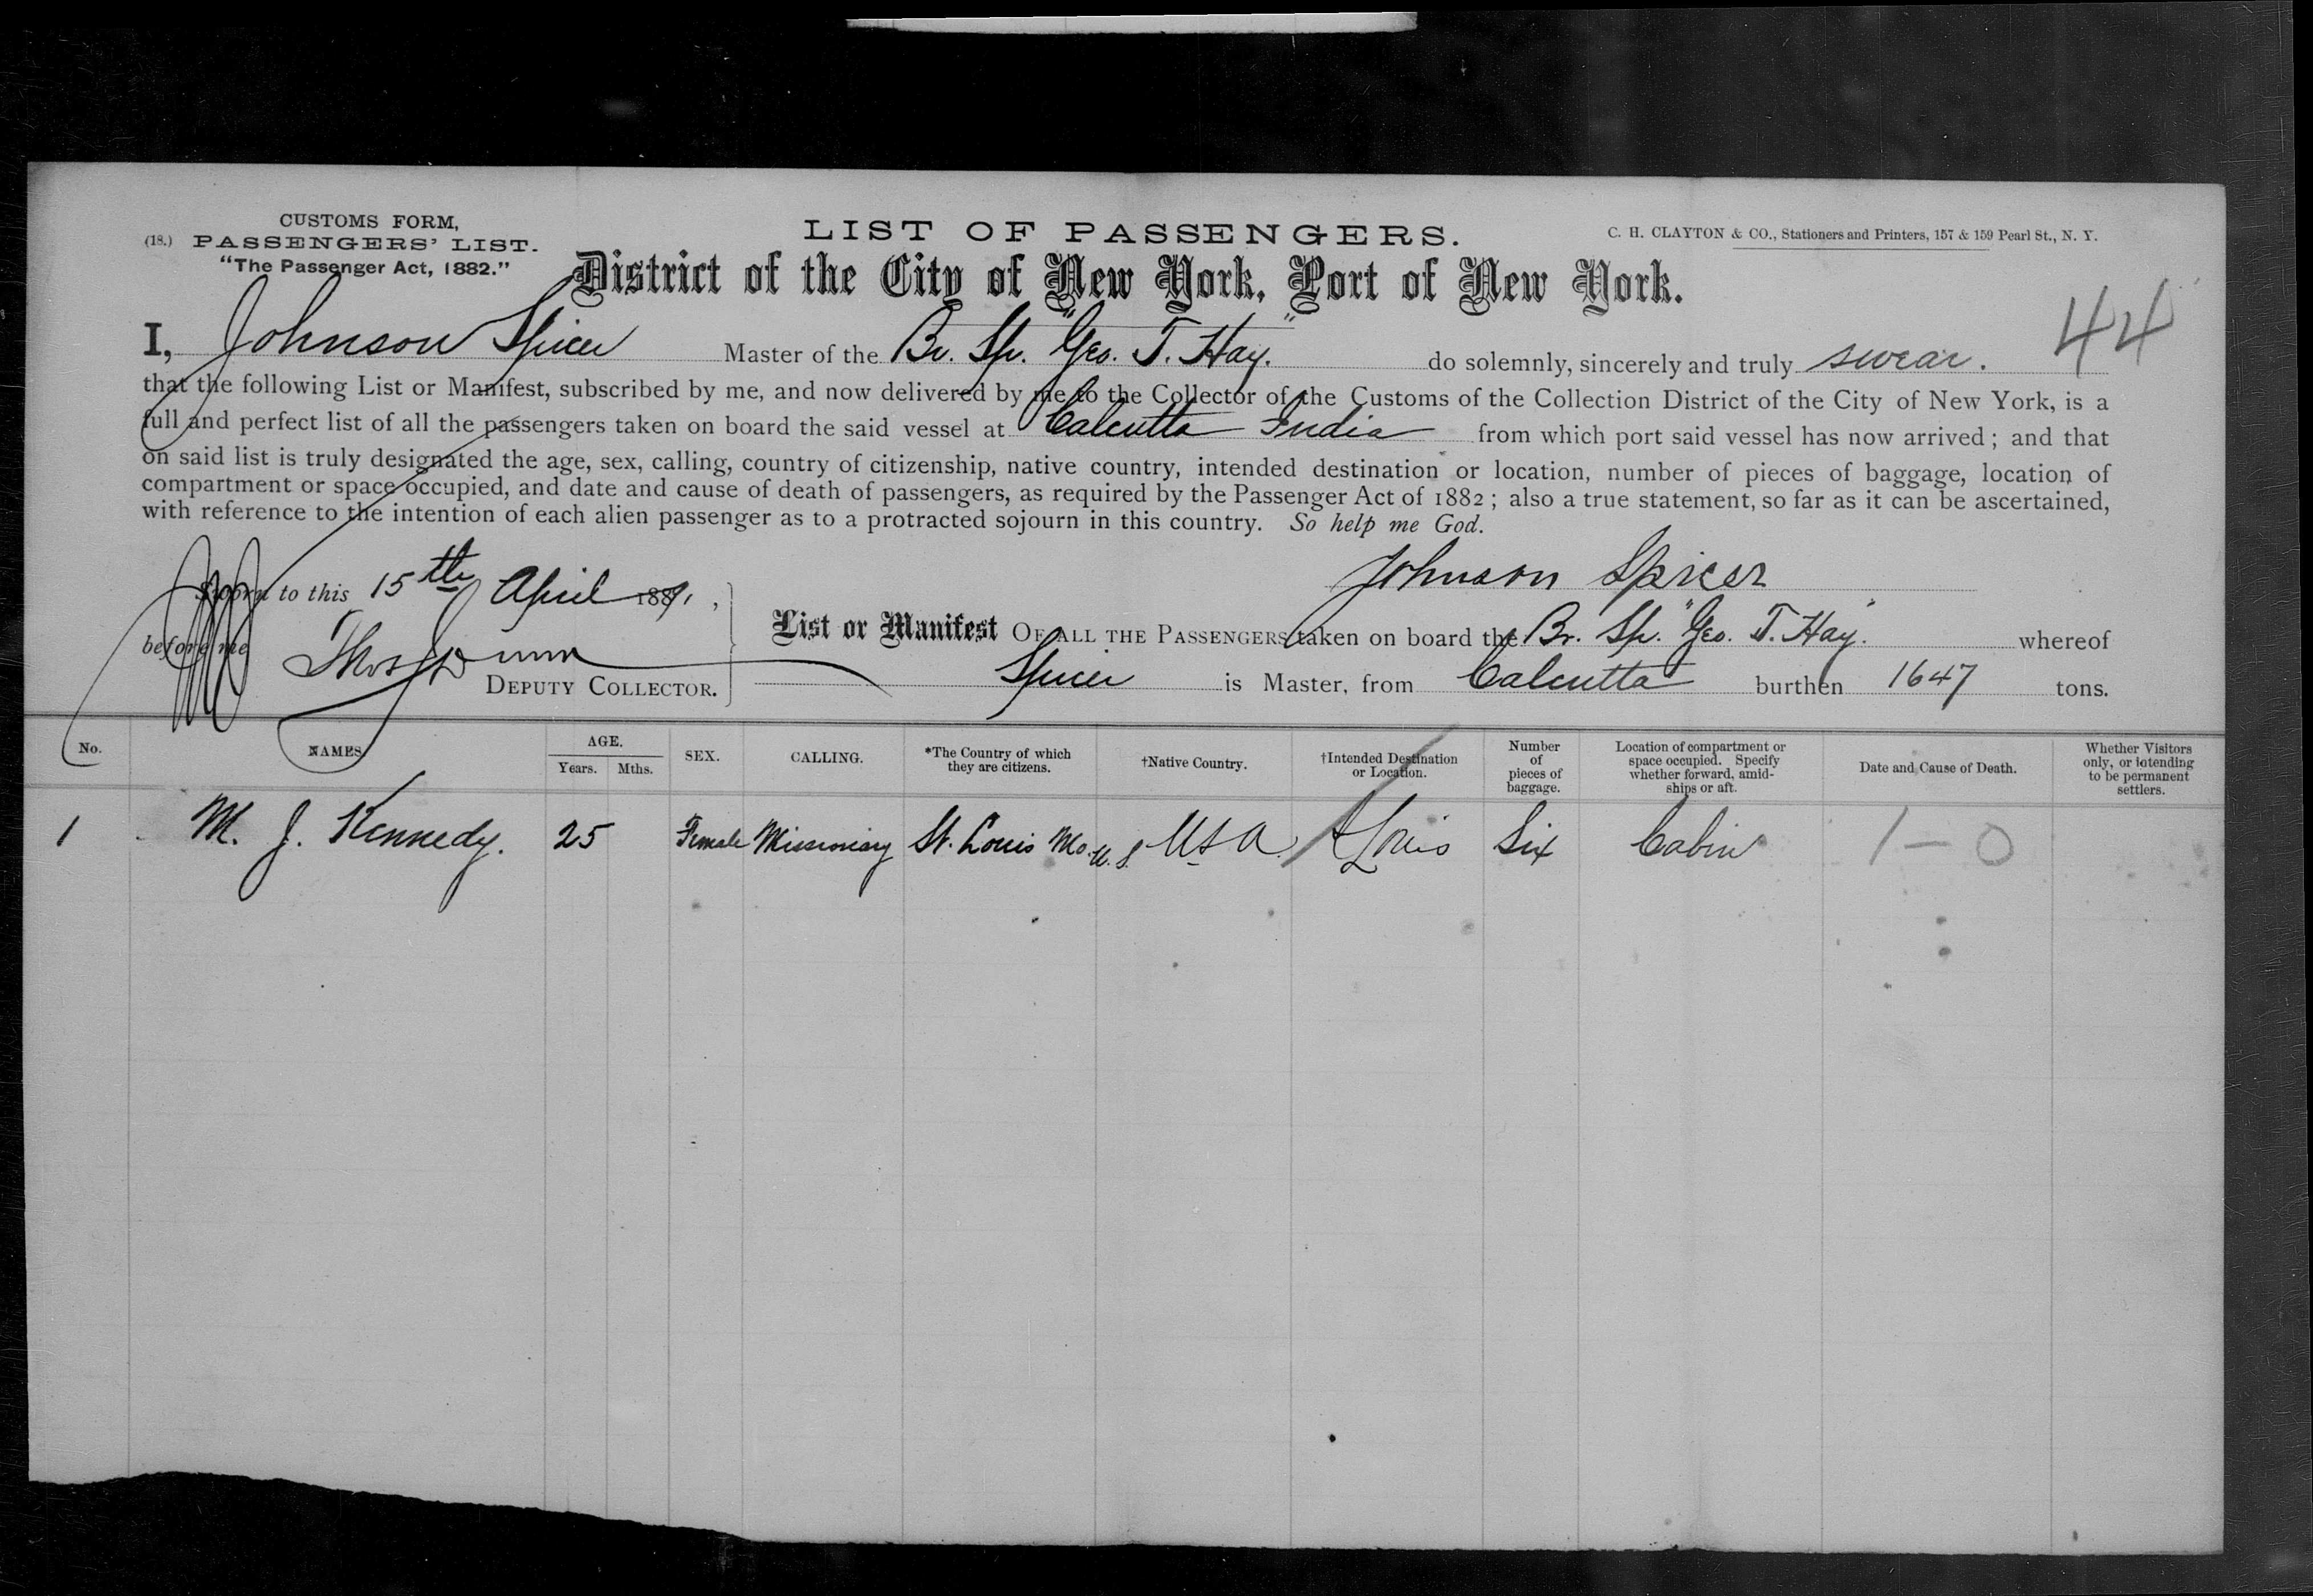 CUSTOMS FORM,
(18.) PASSENGERS' LIST.
"The Passenger Act, 1882."
LIST OF PASSENGERS.
C. H. CLAYTON & CO., Stationers and Printers, 157 & 159 Pearl St., N. Y.
District of the City of New York, Port of New York.
44
I, Johnson Spicer Master of the Br. Sp. "Geo. T. Hay." do solemnly, sincerely and truly swear.
that the following List or Manifest, subscribed by me, and now delivered by me to the Collector of the Customs of the Collection District of the City of New York, is a
full and perfect list of all the passengers taken on board the said vessel at Calcutta India from which port said vessel has now arrived; and that
on said list is truly designated the age, sex, calling, country of citizenship, native country, intended destination or location, number of pieces of baggage, location of
compartment or space occupied, and date and cause of death of passengers, as required by the Passenger Act of 1882; also a true statement, so far as it can be ascertained,
with reference to the intention of each alien passenger as to a protracted sojourn in this country. So help me God.
Johnson Spicer
Sworn to this 15th April 1891,
before me Thos Dunn
DEPUTY COLLECTOR.
List or Manifest OF ALL THE PASSENGERS taken on board the Br. Sp. "Geo. T. Hay." whereof
Spicer is Master, from Calcutta burthen 1647 tons.
No. NAMES AGE. Years. Mths. SEX. CALLING. *The Country of which they are citizens. †Native Country. †Intended Destination or Location. Number of pieces of baggage. Location of compartment or space occupied. Specify whether forward, amidships or aft. Date and Cause of Death. Whether Visitors only, or intending to be permanent settlers.
1 M. J. Kennedy. 25 Female Missionary St. Louis Mo. U.S. USA St Louis Six Cabin 1—0